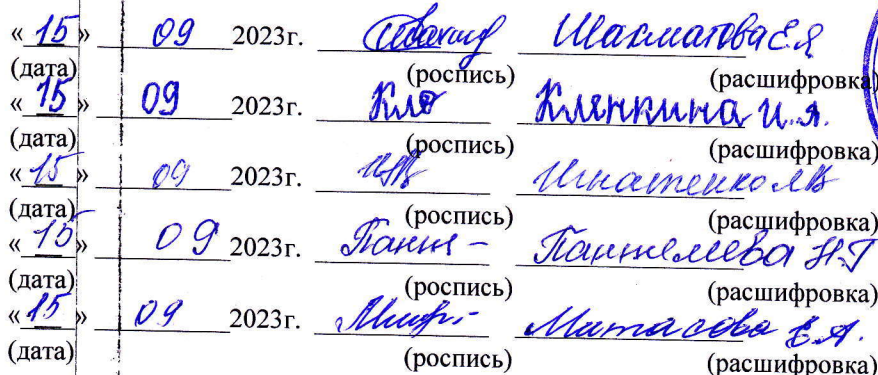 « 15 » 09 2023г. Шахматова Е.Я
(дата) (роспись) (расшифровка)
« 15 » 09 2023г. Кля Клянкина И.Я.
(дата) (роспись) (расшифровка)
« 15 » 09 2023г. Игнатенко ЛВ
(дата) (роспись) (расшифровка)
« 15 » 09 2023г. Пантелеева Н.Г
(дата) (роспись) (расшифровка)
« 15 » 09 2023г. Митасова Е.А.
(дата) (роспись) (расшифровка)